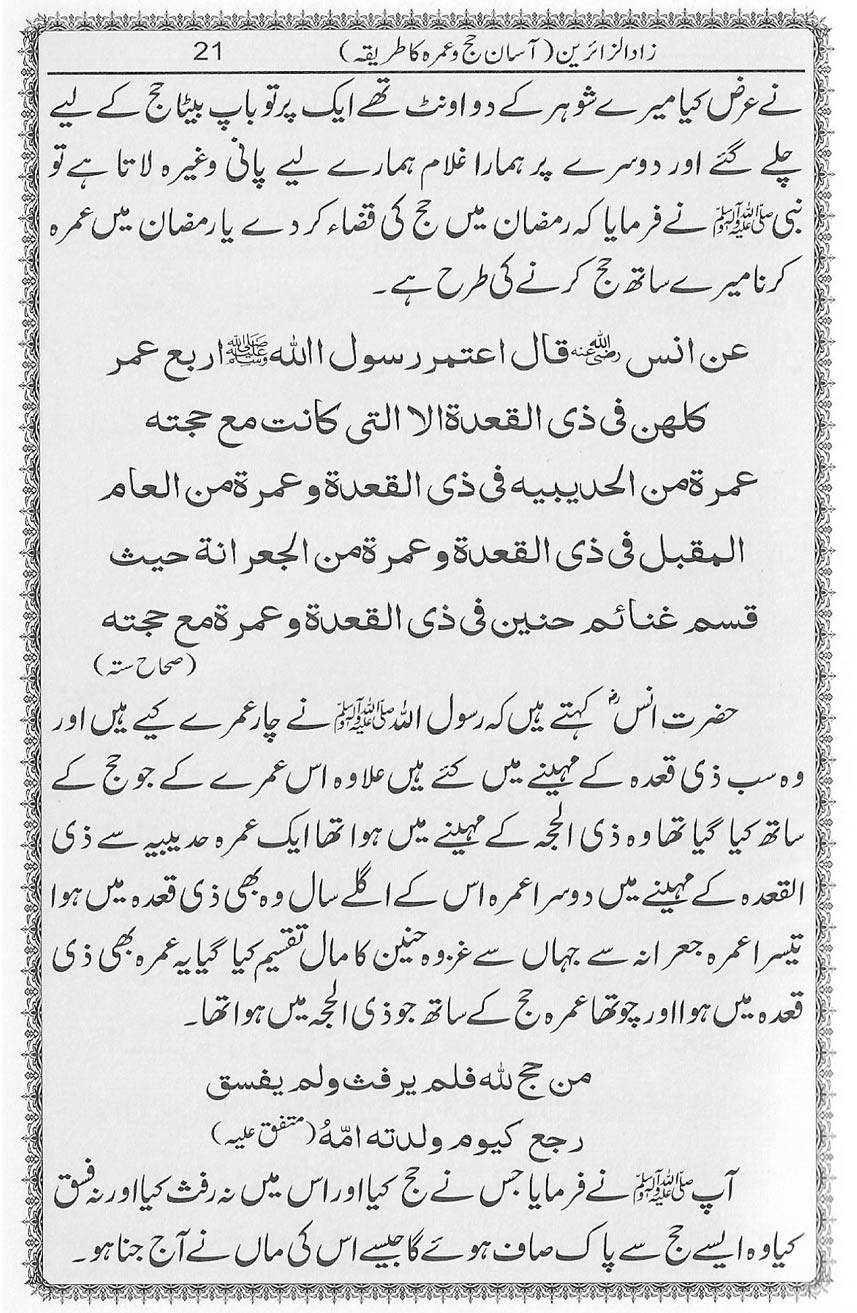 زاد الزائرین (آسان حج و عمرہ کا طریقہ) 21
نے عرض کیا میرے شوہر کے دو اونٹ تھے ایک پر تو باپ بیٹا حج کے لیے
چلے گئے اور دوسرے پر ہمارا غلام ہمارے لیے پانی وغیرہ لاتا ہے تو
نبی ﷺ نے فرمایا کہ رمضان میں حج کی قضاء کر دے یا رمضان میں عمرہ
کرنا میرے ساتھ حج کرنے کی طرح ہے۔
عن انس رضی اللہ عنہ قال اعتمر رسول االله ﷺ اربع عمر
کلهن فی ذی القعدة الا التی کانت مع حجته
عمرة من الحدیبیه فی ذی القعدة و عمرة من العام
المقبل فی ذی القعدة و عمرة من الجعرانة حیث
قسم غنائم حنین فی ذی القعدة و عمرة مع حجته
(صحاح ستہ)
حضرت انسؓ کہتے ہیں کہ رسول اللہ ﷺ نے چار عمرے کیے ہیں اور
وہ سب ذی قعدہ کے مہینے میں کئے ہیں علاوہ اس عمرے کے جو حج کے
ساتھ کیا گیا تھا وہ ذی الحجہ کے مہینے میں ہوا تھا ایک عمرہ حدیبیہ سے ذی
القعدہ کے مہینے میں دوسرا عمرہ اس کے اگلے سال وہ بھی ذی قعدہ میں ہوا
تیسرا عمرہ جعرانہ سے جہاں سے غزوہ حنین کا مال تقسیم کیا گیا یہ عمرہ بھی ذی
قعدہ میں ہوا اور چوتھا عمرہ حج کے ساتھ جو ذی الحجہ میں ہوا تھا۔
من حج لله فلم یرفث ولم یفسق
رجع کیوم ولدته امّهُ (متفق علیہ)
آپ ﷺ نے فرمایا جس نے حج کیا اور اس میں نہ رفث کیا اور نہ فسق
کیا وہ ایسے حج سے پاک صاف ہوئے گا جیسے اس کی ماں نے آج جنا ہو۔